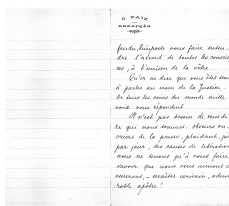 O PAIZ
REDACÇÃO
vous faire enten-
dre l'accord de toutes les conscien-
ces, à l'unison de la vôtre.
Qu'on ne dise que vous êtes seul
à parler au nom de la justice.
De tous les coins du monde mille
voix vous répondent.
Il n'est pas besoin de vous di-
re qui nous sommes: obscurs ou-
vriers de la presse, plaidant, jour
par jour, des causes de libération
nous ne tenons qu'à vous faire
savoir que nous vous aimons et
vénérons, maître écrivain, admi-
rable apôtre!